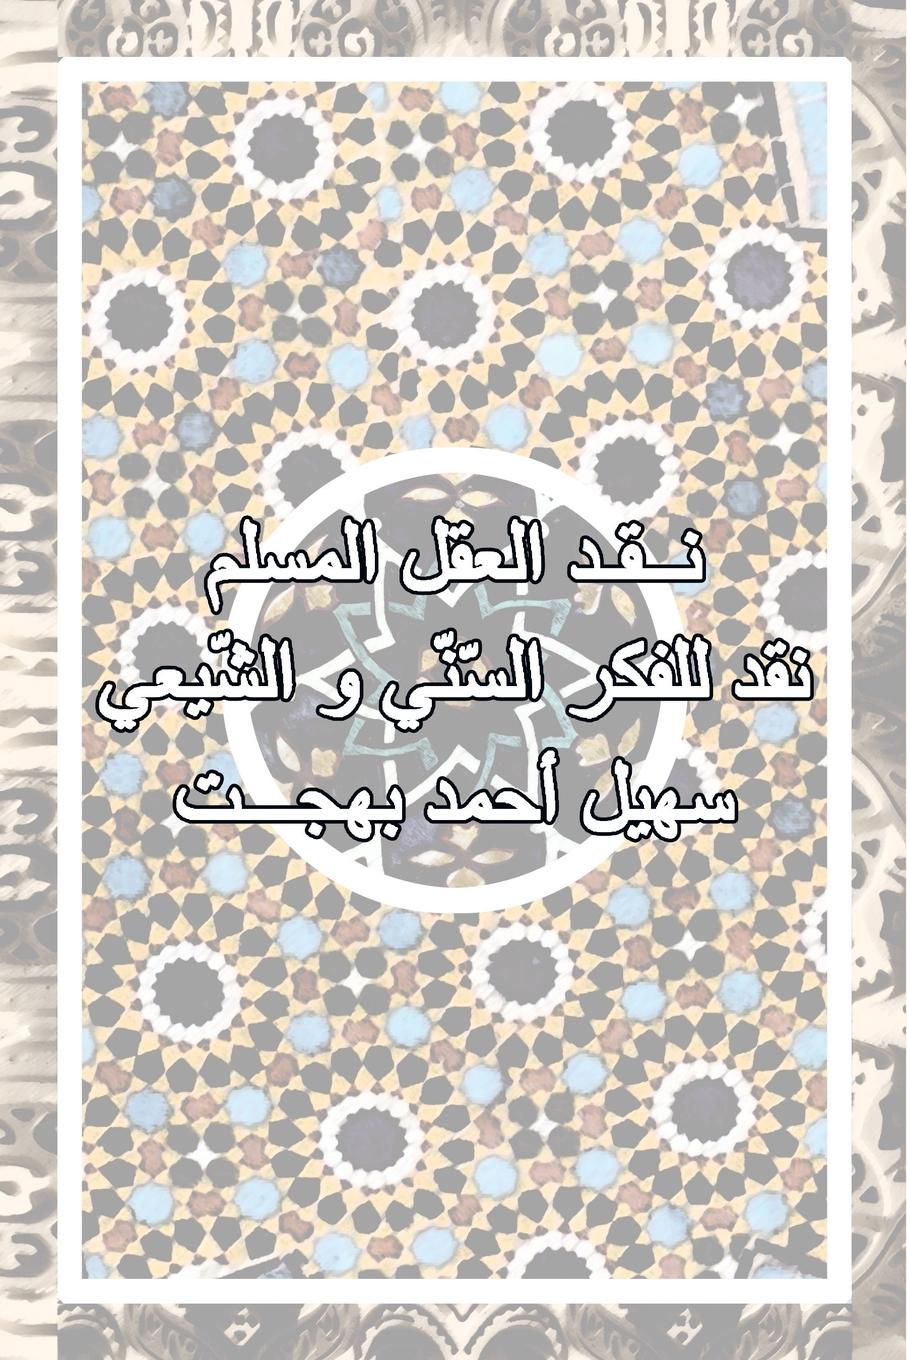 نـقـد العقل المسلم
نقد للفكر السّنّي و الشّيعي
سهيل أحمد بهجـــت